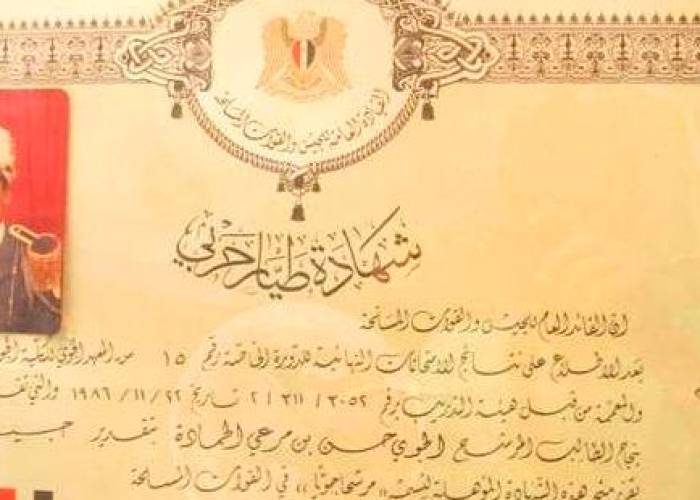 القيادة العامة للجيش والقوات المسلحة
شهادة طيار حربي
ان القائد العام للجيش والقوات المسلحة
بعد الاطلاع على نتائج الامتحانات النهائية للدورة الخاصة رقم ١٥ من المعهد الجوي
والمعممة من قبل هيئة التدريب برقم ٣٠٥٢ / ٣١١ / ٢ تاريخ ٢٢ / ١١ / ١٩٨٦ والتي
نجاح الطالب المرشح الجوي حسن بن مرعي الحمادة بتقدير جيد
هذه الشهادة المؤهلة لتسميته « مرشحا جويا » في القوات المسلحة